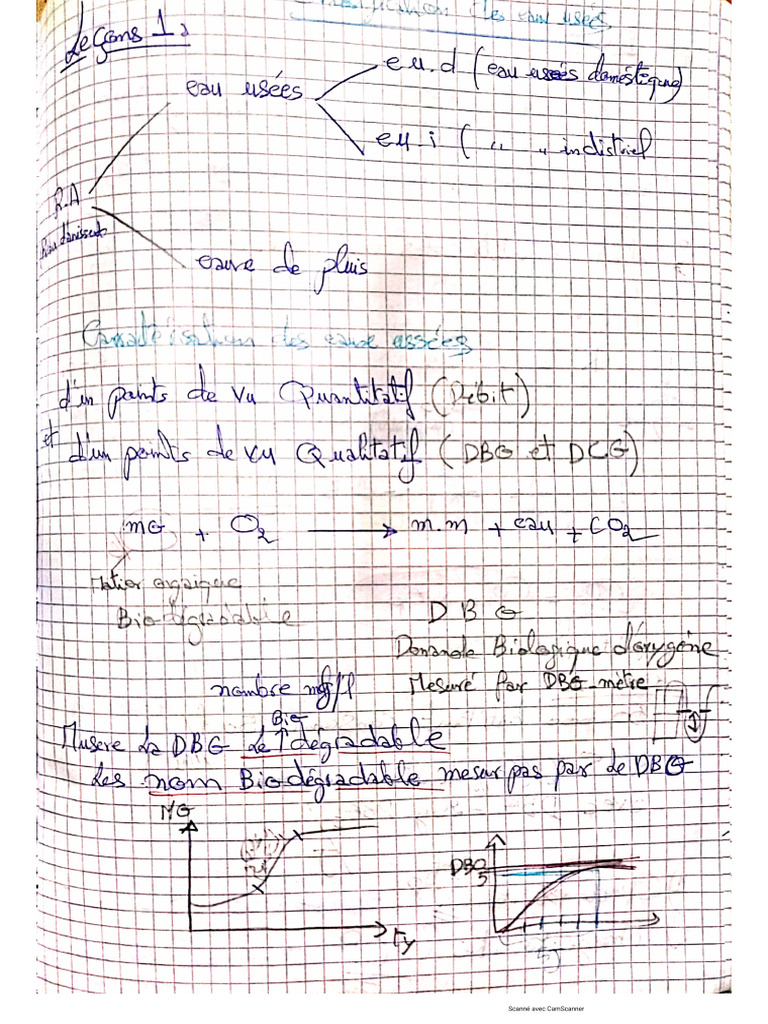 des eaux usées
Leçons 1:
eau usées
e.u.d (eau usées doméstique)
e.u.i ( " " indistriel
R.A
eaux de pluis
Caractérisation des eaux usées
d'un points de vu Quantitatif (Débit)
et d'un points de vu Qualitatif (DBO et DCO)
MO + O2 → m.m + eau + CO2
Matier organique
Biodégradable
D B O
Demande Biologique d'oxygéne
nombre mg/l
Mesuré par DBO-mètre
Musere la DBO le Bio dégradable
les nom Biodégradable mesur pas par le DBO
MO
DBO
5
5j
Scanné avec CamScanner